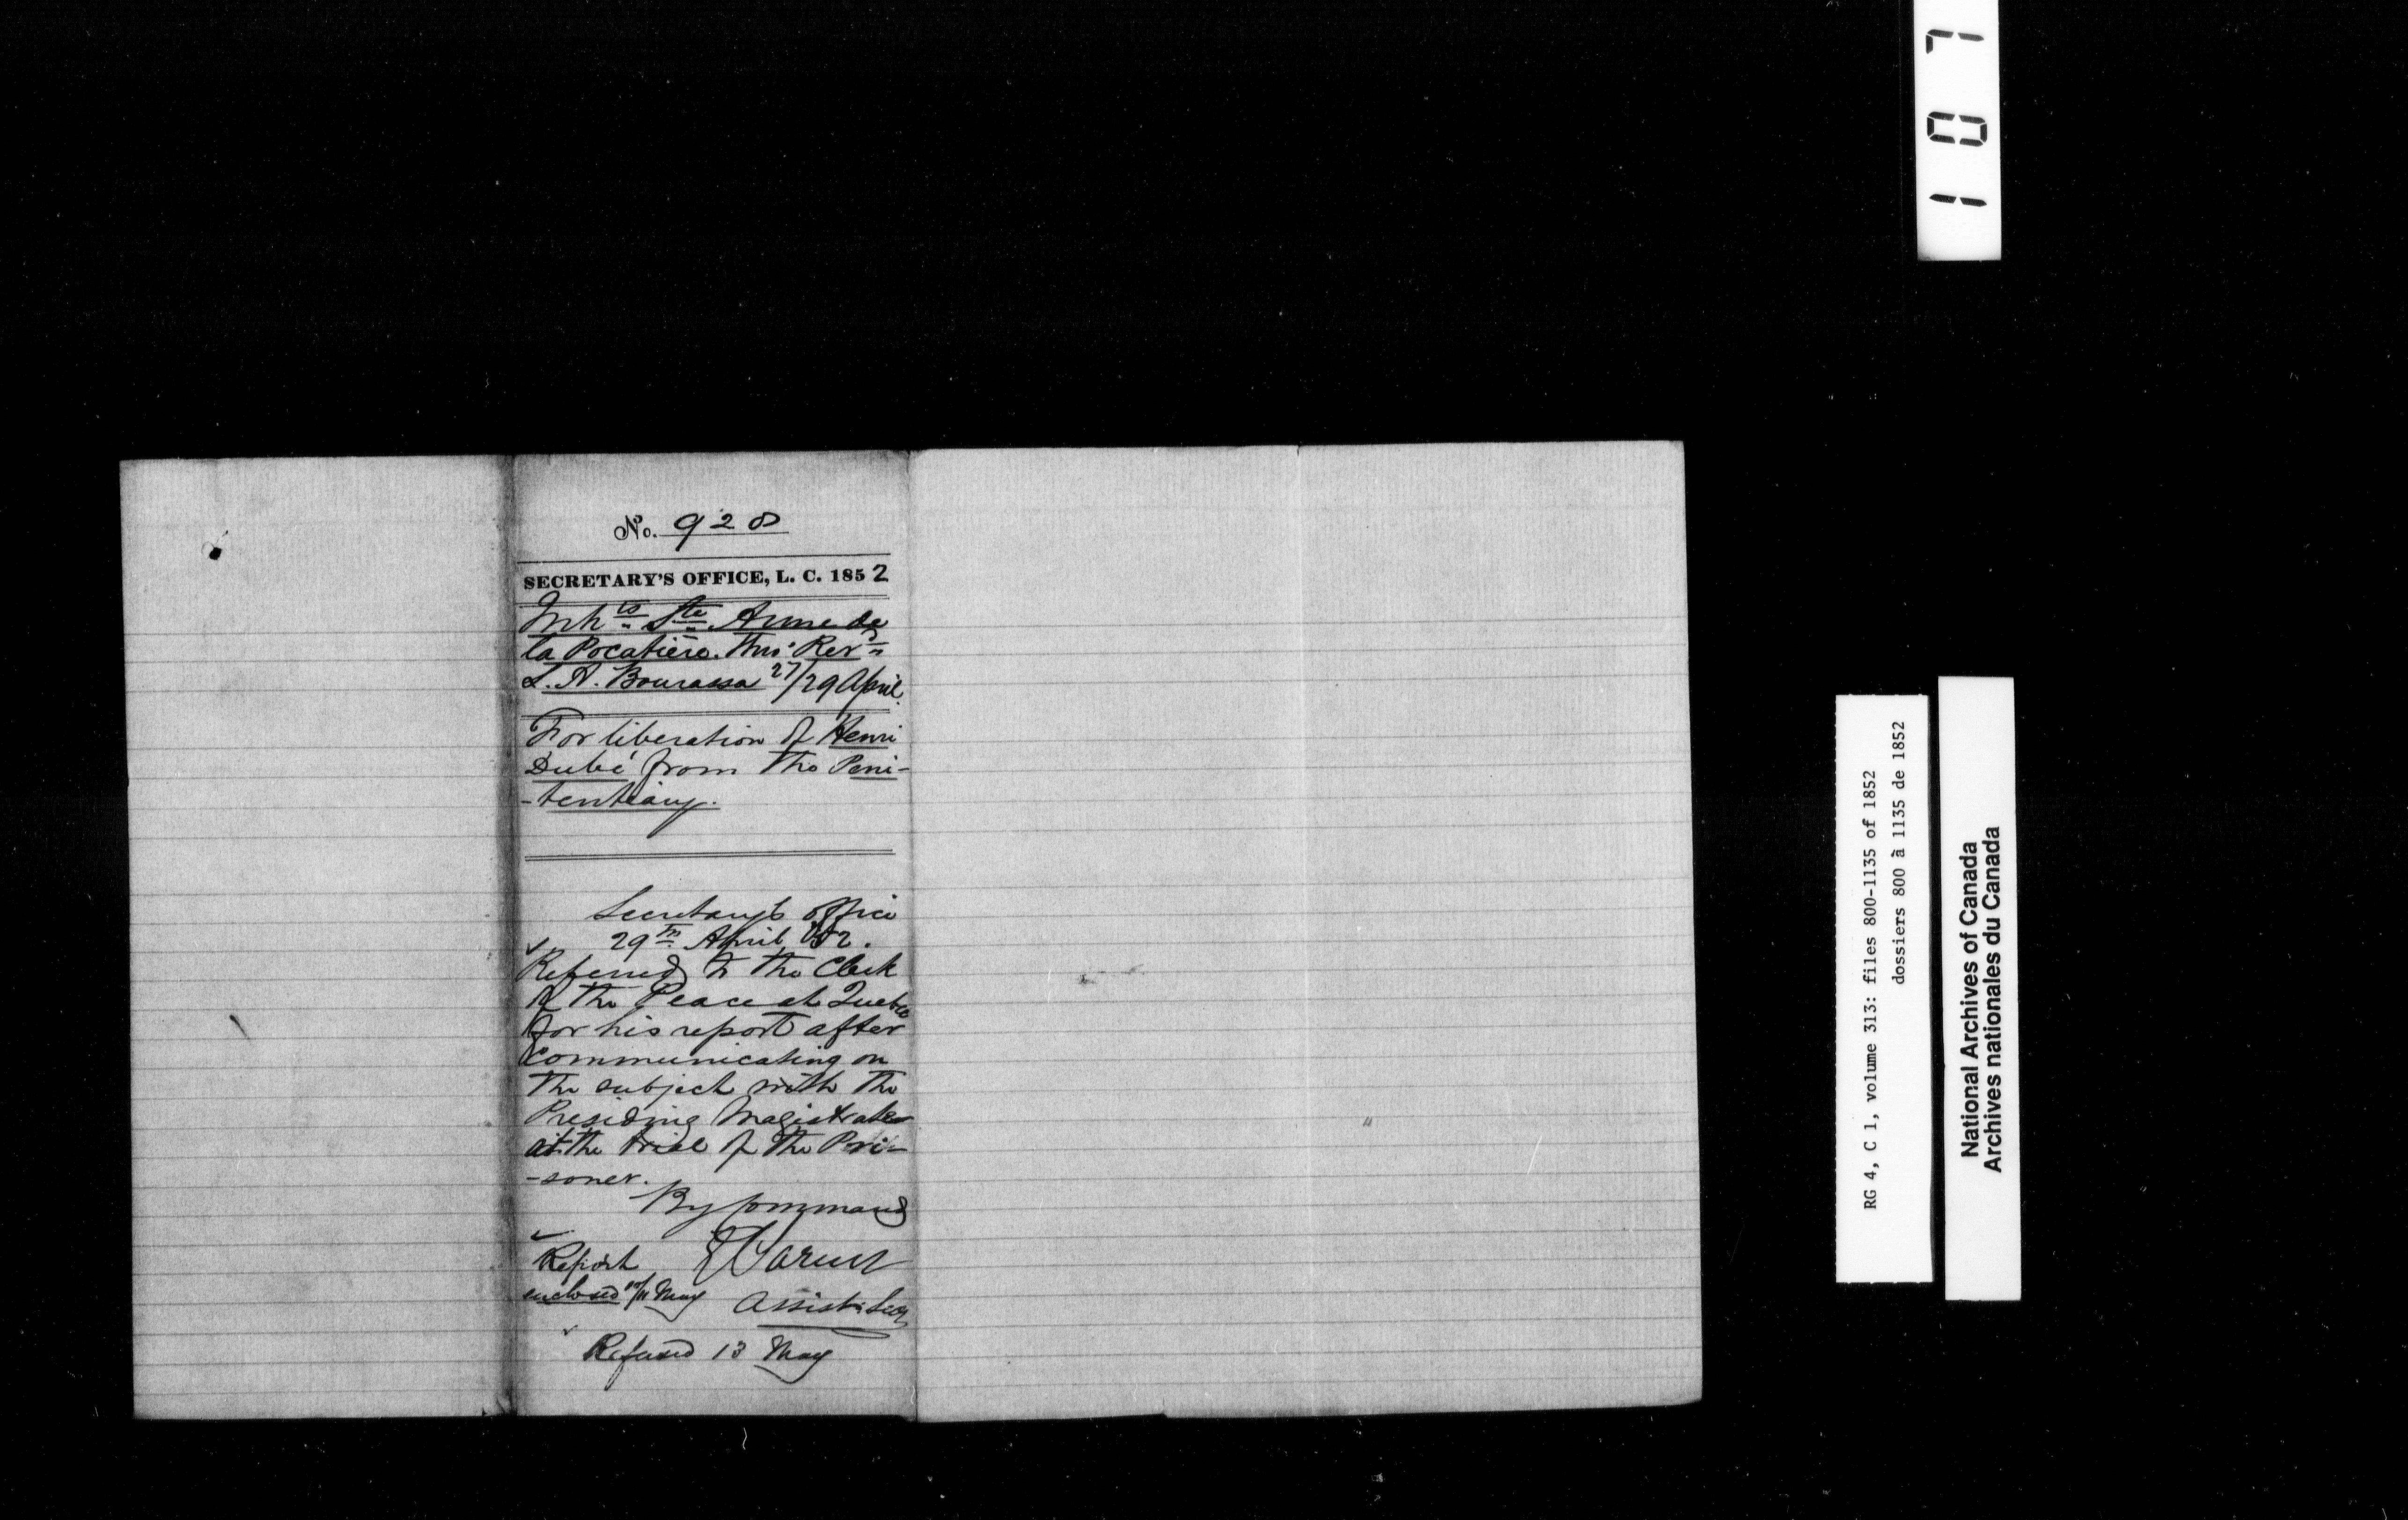 No. 928
SECRETARY'S OFFICE, L. C. 1852
Inhts Ste Anne de
la Pocatière. Thro' Revd
L. A. Bourassa 27/29 April.
For liberation of Henri
Dubé from the Peni-
-tentiary.
Secretary's office
29th April '52.
Referred to the Clerk
of the Peace at Quebec
for his report after
communicating on
the subject with the
Presiding Magistrate
at the trial of the Pri-
-soner.
By Command
Report
enclosed /11 May
Assist: Secy
Refused 13 May
107
RG 4, C 1, volume 313: files 800-1135 of 1852
dossiers 800 à 1135 de 1852
National Archives of Canada
Archives nationales du Canada